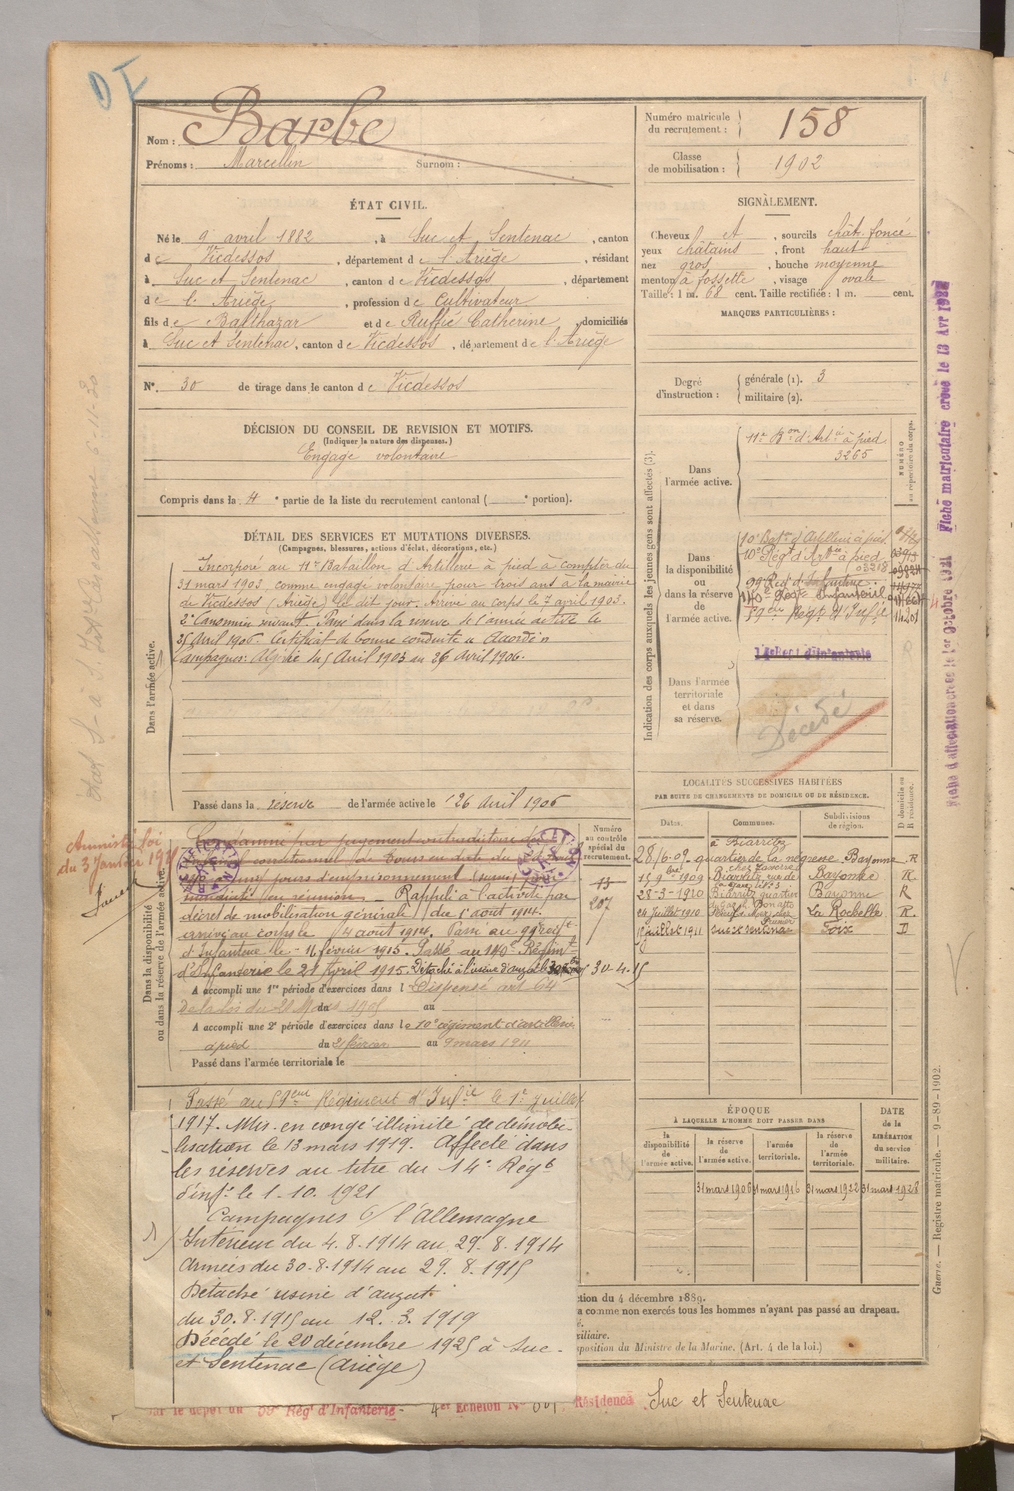 Nom : Barbe
Prénoms : Marcellin Surnom :
Numéro matricule du recrutement : 158
Classe de mobilisation : 1902
ÉTAT CIVIL.
Né le 9 avril 1882, à Suc et Sentenac, canton
de Vicdessos, département de l'Ariège, résidant
à Suc et Sentenac, canton de Vicdessos, département
de l'Ariège, profession de Cultivateur
fils de Balthazar et de Ruffié Catherine, domiciliés
à Suc et Sentenac, canton de Vicdessos, département de l'Ariège
N° 30 de tirage dans le canton de Vicdessos
SIGNALEMENT.
Cheveux et, sourcils chât. foncé
yeux châtains, front haut
nez gros, bouche moyenne
menton à fossette, visage ovale
Taille : 1 m. 68 cent. Taille rectifiée : 1 m. cent.
MARQUES PARTICULIÈRES :
Degré d'instruction : générale (1). 3
militaire (2).
DÉCISION DU CONSEIL DE REVISION ET MOTIFS.
(Indiquer la nature des dispenses.)
Engagé volontaire
Compris dans la 4e partie de la liste du recrutement cantonal ( e portion).
DÉTAIL DES SERVICES ET MUTATIONS DIVERSES.
(Campagnes, blessures, actions d'éclat, décorations, etc.)
Dans l'armée active.
Incorporé au 11e Bataillon d'Artillerie à pied à compter du
31 mars 1903 comme engagé volontaire pour trois ans à la mairie
de Vicdessos (Ariège) le dit jour. Arrivé au corps le 7 avril 1903.
2e Canonnier suivant. Passé dans la réserve de l'armée active le
26 Avril 1906. Certificat de bonne conduite "Accordé"
Campagnes : Algérie du 5 Avril 1903 au 26 Avril 1906.
Passé dans la réserve de l'armée active le 26 avril 1906
Indication des corps auxquels les jeunes gens sont affectés (3).
NUMÉRO au répertoire du corps.
Dans l'armée active.
11e Bon d'Artie à pied
3265
Dans la disponibilité ou dans la réserve de l'armée active.
10e Baton d'Artillerie à pied
10e Régt d'Artie à pied
03218
99 Rég d'Infanterie
140e Régt Infanterie
59eme Régt d'Infie
Dans l'armée territoriale et dans sa réserve.
Décédé
LOCALITÉS SUCCESSIVES HABITÉES
PAR SUITE DE CHANGEMENTS DE DOMICILE OU DE RÉSIDENCE.
Dates. Communes. Subdivisions de région. D domicile ou R résidence.
à Biarritz
28/6.08 quartier de la négresse Bayonne R
15 9bre 1909 Biarritz, rue de Bayonne R.
28-3-1910 Biarritz quartier Bayonne R
24 Juillet 1910 La Rochelle R.
Juillet 1911 Suc et Sentenac Foix D
Amnistié loi
du 3 Janvier 1925
Dans la disponibilité ou dans la réserve de l'armée active.
Numéro au contrôle spécial du recrutement.
13
207
30-4-15
Condamné par jugement contradictoire du
jours d'emprisonnement
Rappelé à l'activité par
décret de mobilisation générale du 1er août 1914.
arrivé au corps le 4 août 1914. Passé au 99e régt
d'Infanterie le 11 février 1915. Passé au 140e Régimt
d'Infanterie le 21 Avril 1915. Détaché à l'usine d'
A accompli une 1re période d'exercices dans l Dispensé art 64
de la loi du 21 Mars 1905 du au
A accompli une 2e période d'exercices dans le 10e régiment d'artillerie
à pied du 21 février au 9 mars 1911
Passé dans l'armée territoriale le
Passé au 59eme Régiment d'Infie le 1er Juillet
1917. Mis en congé illimité de démobi-
lisation le 13 mars 1919. Affecté dans
les réserves au titre du 14e Régt
d'inft le 1-10-1921
Campagnes c/ l'Allemagne
Intérieur du 4.8.1914 au 29.8.1914
Armées du 30.8.1914 au 29.8.1915
Détaché usine d'
du 30.8.1915 au 12.3.1919
Décédé le 20 décembre 1925 à Suc-
et Sentenac (Ariège)
ÉPOQUE
À LAQUELLE L'HOMME DOIT PASSER DANS
DATE DE LA LIBÉRATION du service militaire.
la disponibilité de l'armée active. la réserve de l'armée active. l'armée territoriale. la réserve de l'armée territoriale.
31 mars 1906 31 mars 1916 31 mars 1922 31 mars 1928
ction du 4 décembre 1889.
a comme non exercés tous les hommes n'ayant pas passé au drapeau.
xiliaire.
sposition du Ministre de la Marine. (Art. 4 de la loi.)
par le dépôt du Rég' d'Infanterie - 4er Echelon N° Résidence Suc et Sentenac
Fiche d'affectation créée le 1er Octobre 1921 Fiche matriculaire créée le 13 Avr
Guerre. — Registre matricule. — 9-89-1902.